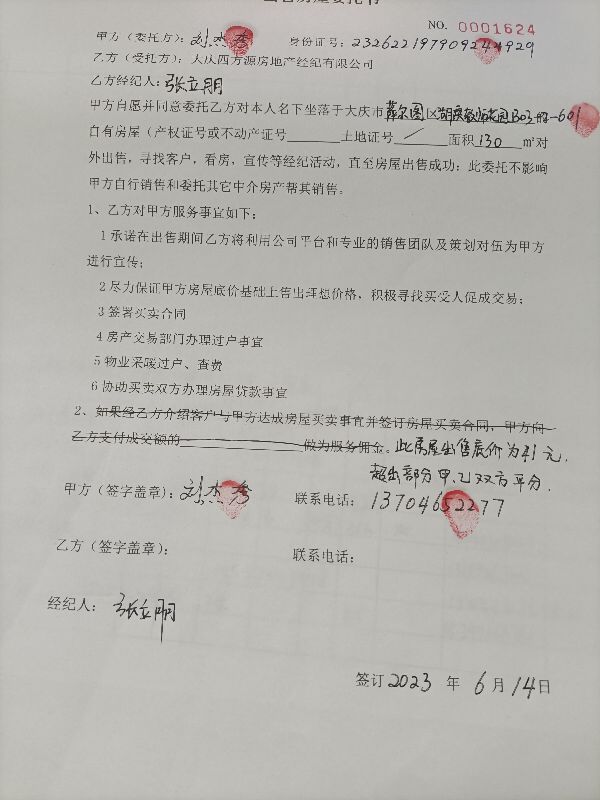 出售房屋委托书
NO. 0001624
甲方（委托方）：刘杰秀 身份证号：232622197909244929
乙方（受托方）：大庆四方源房地产经纪有限公司
乙方经纪人：张立明
甲方自愿并同意委托乙方对本人名下坐落于大庆市萨尔图区 花园B03-601
自有房屋（产权证号或不动产证号______土地证号 / 面积130 ㎡对
外出售，寻找客户，看房，宣传等经纪活动，直至房屋出售成功；此委托不影响
甲方自行销售和委托其它中介房产帮其销售。
1、乙方对甲方服务事宜如下；
1 承诺在出售期间乙方将利用公司平台和专业的销售团队及策划对伍为甲方
进行宣传；
2 尽力保证甲方房屋底价基础上售出理想价格，积极寻找买受人促成交易；
3 签署买卖合同
4 房产交易部门办理过户事宜
5 物业采暖过户、查费
6 协助买卖双方办理房屋贷款事宜
2、如果经乙方介绍客户与甲方达成房屋买卖事宜并签订房屋买卖合同，甲方向
乙方支付成交额的__________做为服务佣金。此房屋出售底价为 元，
超出部分甲、乙双方平分.
甲方（签字盖章）：刘杰秀 联系电话：13704652277
乙方（签字盖章）： 联系电话：
经纪人：张立明
签订2023 年 6 月 14 日